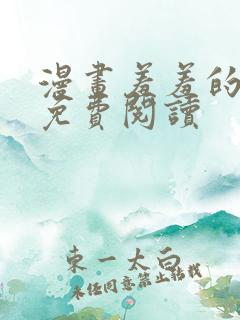 漫畫羞羞的
免費閱讀
東一太白
未任同意禁止轉載